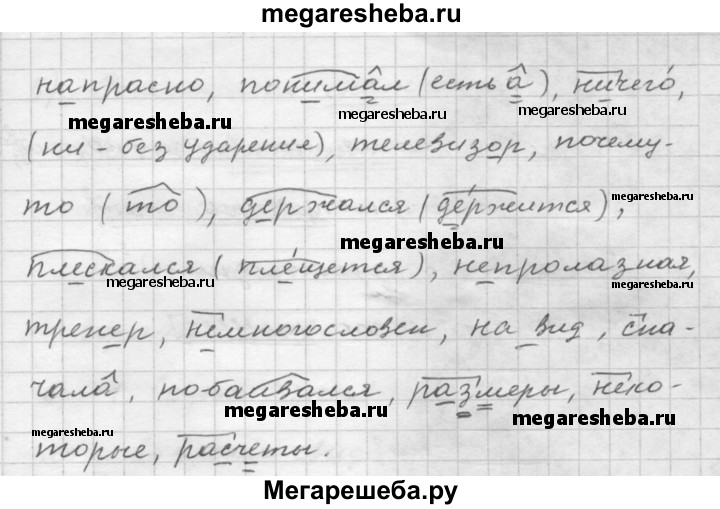 megaresheba.ru
напрасно, понимал (есть а), ничего,
megaresheba.ru megaresheba.ru megaresheba.ru
(ни - без ударения), телевизор, почему-
то (то), держался (держится),
megaresheba.ru
megaresheba.ru
плескался (плещется), непролазная,
megaresheba.ru megaresheba.ru
тренер, немногословен, на вид, сна-
чала, побаивался, размеры, неко-
megaresheba.ru megaresheba.ru
megaresheba.ru
торые, расчеты.
Мегарешеба.ру